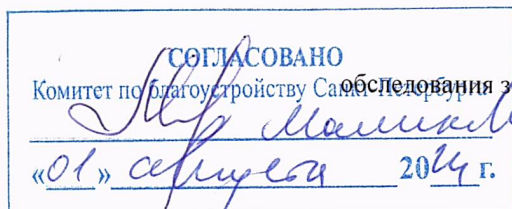 СОГЛАСОВАНО
Комитет по благоустройству Санкт-Петербурга обследования з
«01» августа 2024 г.